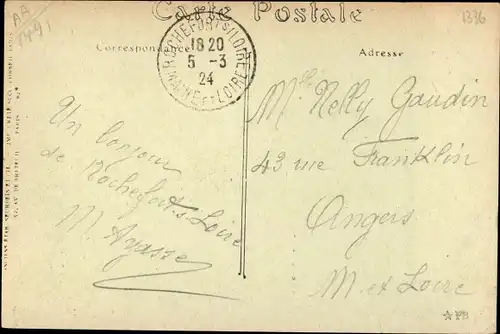 AB
1491
Carte Postale
1336
Correspondance
Adresse
ROCHEFORT S/ LOIRE
18 20
5 -3
24
MAINE ET LOIRE
Un bonjour
de Rochefort s Loire
M. Agasse
Mlle Nelly Gaudin
43 rue Franklin
Angers
M. et Loire